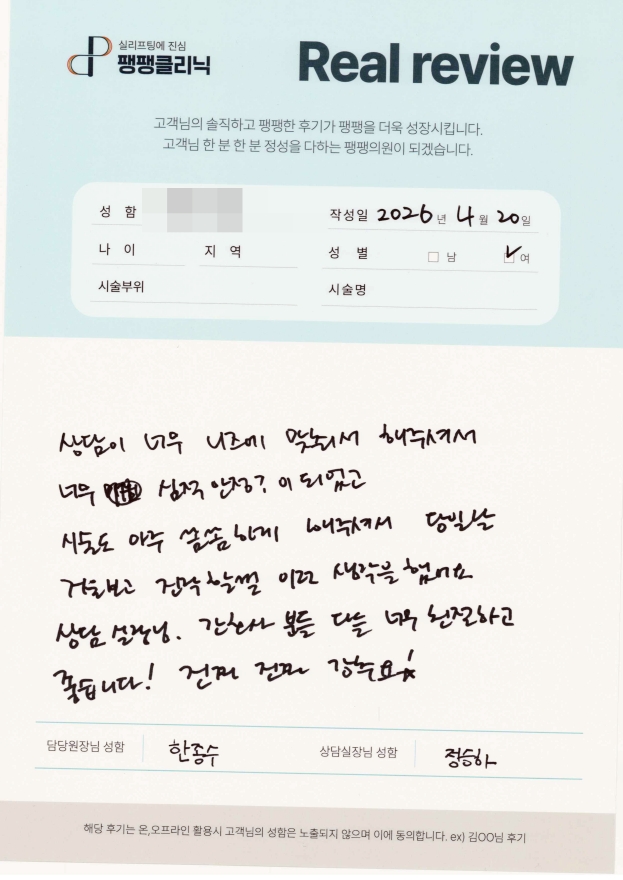 실리프팅에 진심
팽팽클리닉
Real review
고객님의 솔직하고 팽팽한 후기가 팽팽을 더욱 성장시킵니다.
고객님 한 분 한 분 정성을 다하는 팽팽의원이 되겠습니다.
성 함 작성일 2026년 4월 20일
나 이 지 역 성 별 남 여
시술부위 시술명
상담이 너무 니즈에 맞춰서 해주셔서
너무 심적 안정? 이 되었고
시술도 아주 꼼꼼하게 해주셔서 당일날
거울보고 진작 할껄 이라 생각을 했어요
상담 실장님. 간호사 분들 다들 너무 친절하고
좋습니다! 진짜 진짜 강추요!
담당원장님 성함 한종수 상담실장님 성함 정승아
해당 후기는 온,오프라인 활용시 고객님의 성함은 노출되지 않으며 이에 동의합니다. ex) 김OO님 후기